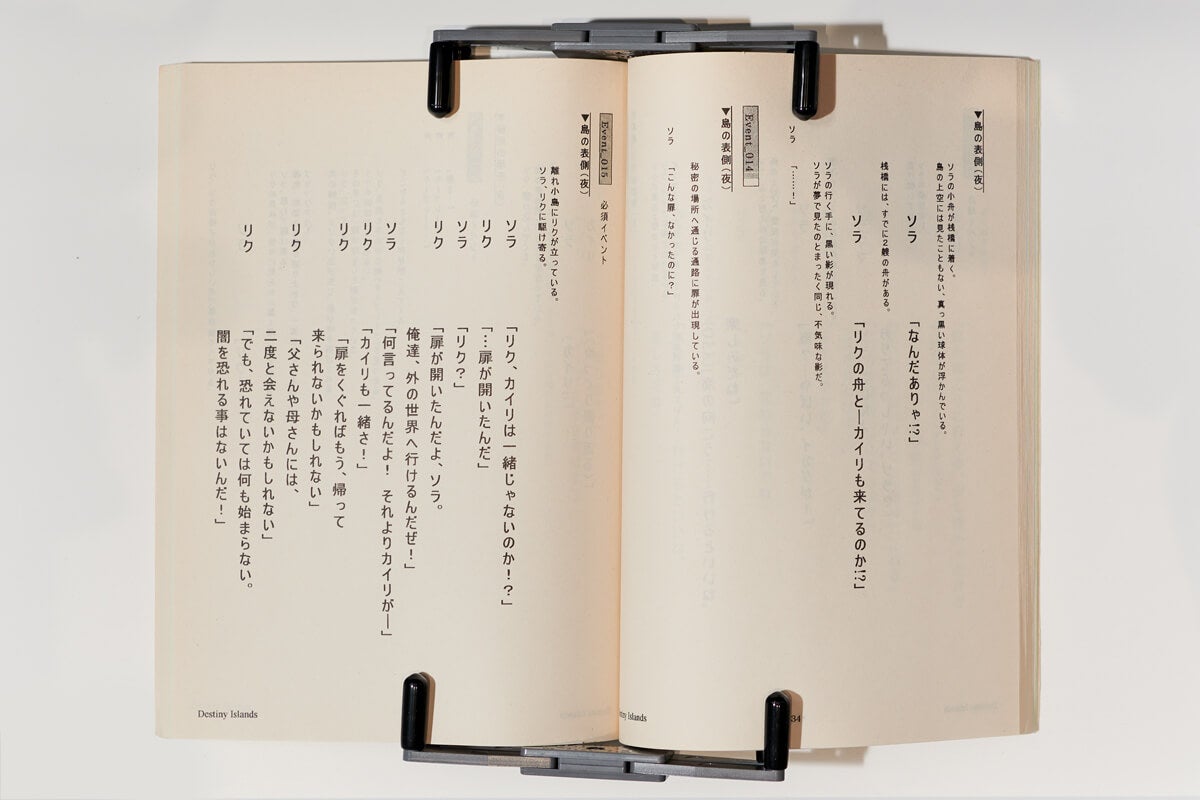 ▼島の表側(夜)
ソラの小舟が桟橋に着く。
島の上空には見たこともない、真っ黒い球体が浮かんでいる。
ソラ 「なんだありゃ!?」
桟橋には、すでに2艘の舟がある。
ソラ 「リクの舟と―カイリも来てるのか!?」
ソラの行く手に、黒い影が現れる。
ソラが夢で見たのとまったく同じ、不気味な影だ。
ソラ 「……!」
Event_014
▼島の表側(夜)
秘密の場所へ通じる通路に扉が出現している。
ソラ 「こんな扉、なかったのに?」
34
tiny Islands
Event_015 必須イベント
▼島の表側(夜)
離れ小島にリクが立っている。
ソラ、リクに駆け寄る。
ソラ 「リク、カイリは一緒じゃないのか!?」
リク 「…扉が開いたんだ」
ソラ 「リク?」
リク 「扉が開いたんだよ、ソラ。
俺達、外の世界へ行けるんだぜ!」
ソラ 「何言ってるんだよ! それよりカイリが―」
リク 「カイリも一緒さ!」
リク 「扉をくぐればもう、帰って
来られないかもしれない」
リク 「父さんや母さんには、
二度と会えないかもしれない」
リク 「でも、恐れていては何も始まらない。
闇を恐れる事はないんだ!」
Destiny Islands